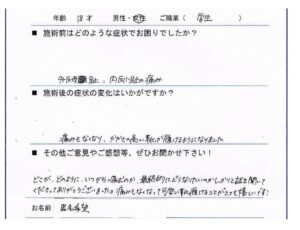 年齢 18才 男性・女性 ご職業（ 学生 ）
■ 施術前はどのような症状でお困りでしたか？
外反母趾、内反小趾の痛み
■ 施術後の症状の変化はいかがですか？
痛みもなくなり、かかとの高い靴が履けるようになりました
■ その他ご意見やご感想等、ぜひお聞かせ下さい！
どこが、どのように、いつからの痛むのか、最終的にどうなりたいのかしっかりと話を聞いて
くださってありがとうございました。痛みもなくなって可愛い靴が履けることがとても嬉しいです！
お名前 匿名希望